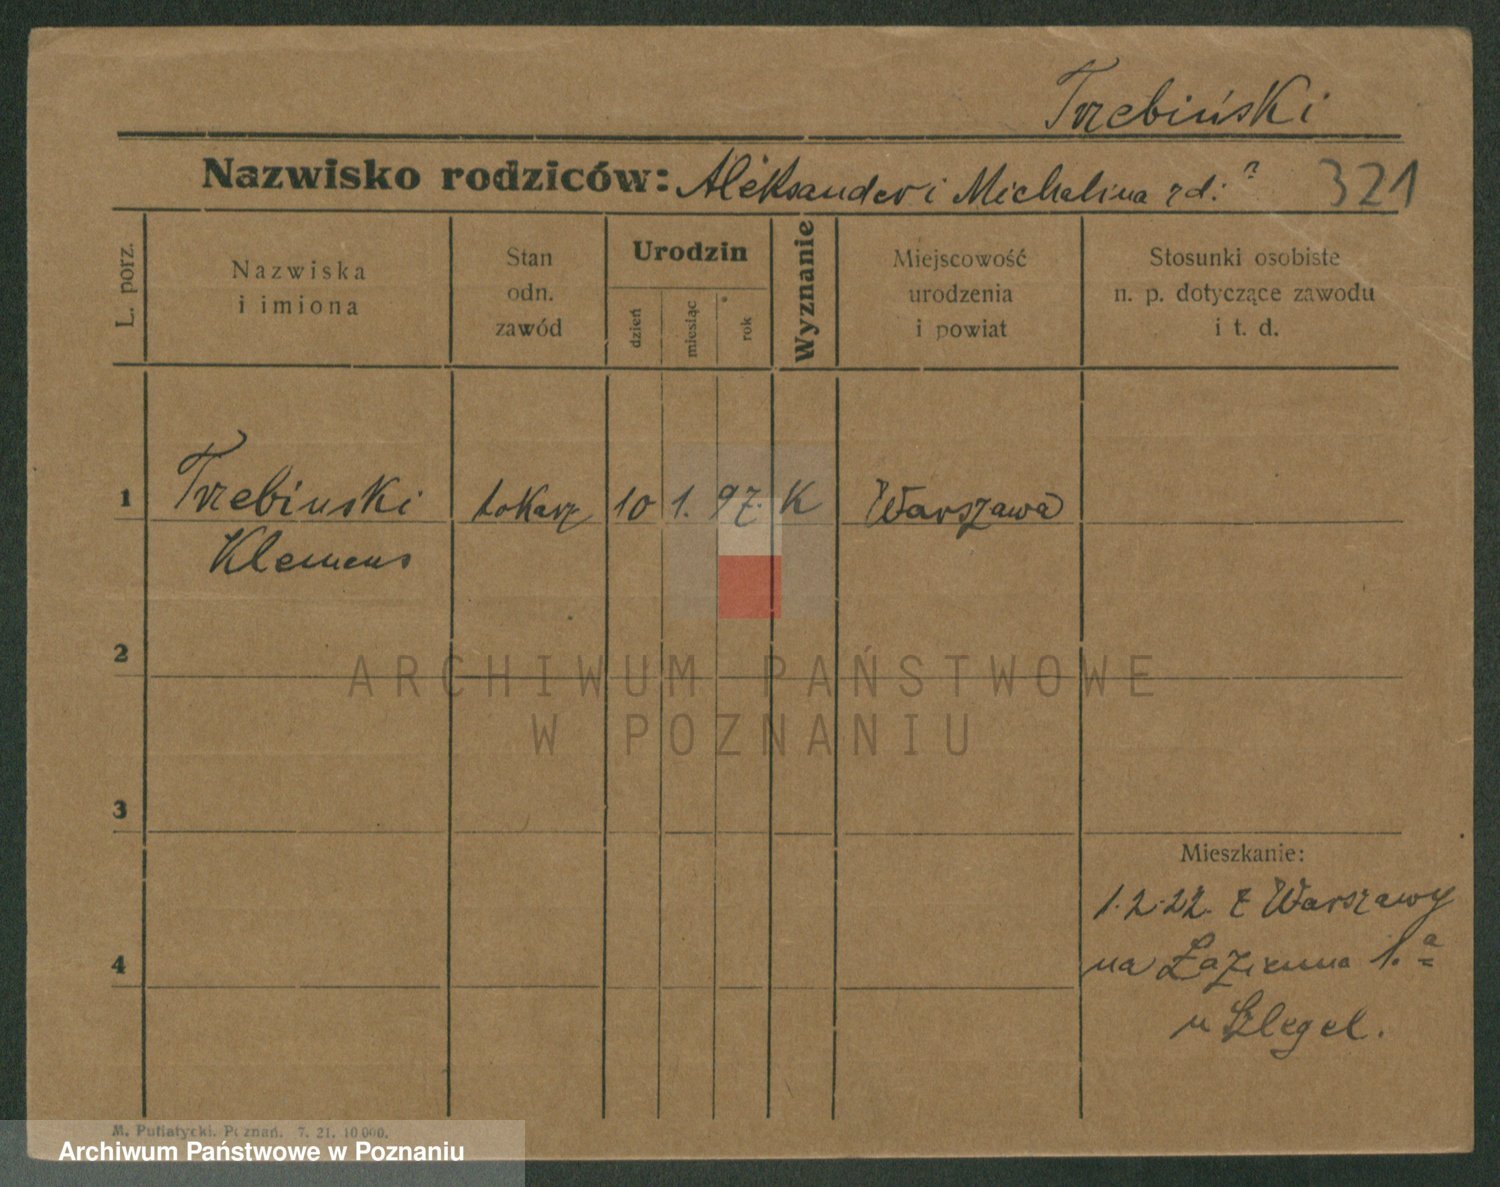 Trzebiński
Nazwisko rodziców: Aleksander i Michalina rd: ?
321
L. porz.
Nazwiska
i imiona
Stan
odn.
zawód
Urodzin
dzień
miesiąc
rok
Wyznanie
Miejscowość
urodzenia
i powiat
Stosunki osobiste
n. p. dotyczące zawodu
i t. d.
1 Trzebinski tokarz 10 1. 97. K Warszawa
Klemens
2
ARCHIWUM PAŃSTWOWE
W POZNANIU
3
Mieszkanie:
1.2.22. z Warszawy
4 na Łazienna 1.a
u Szlegel.
M. Putiatycki. Poznań. 7. 21. 10 000.
Archiwum Państwowe w Poznaniu